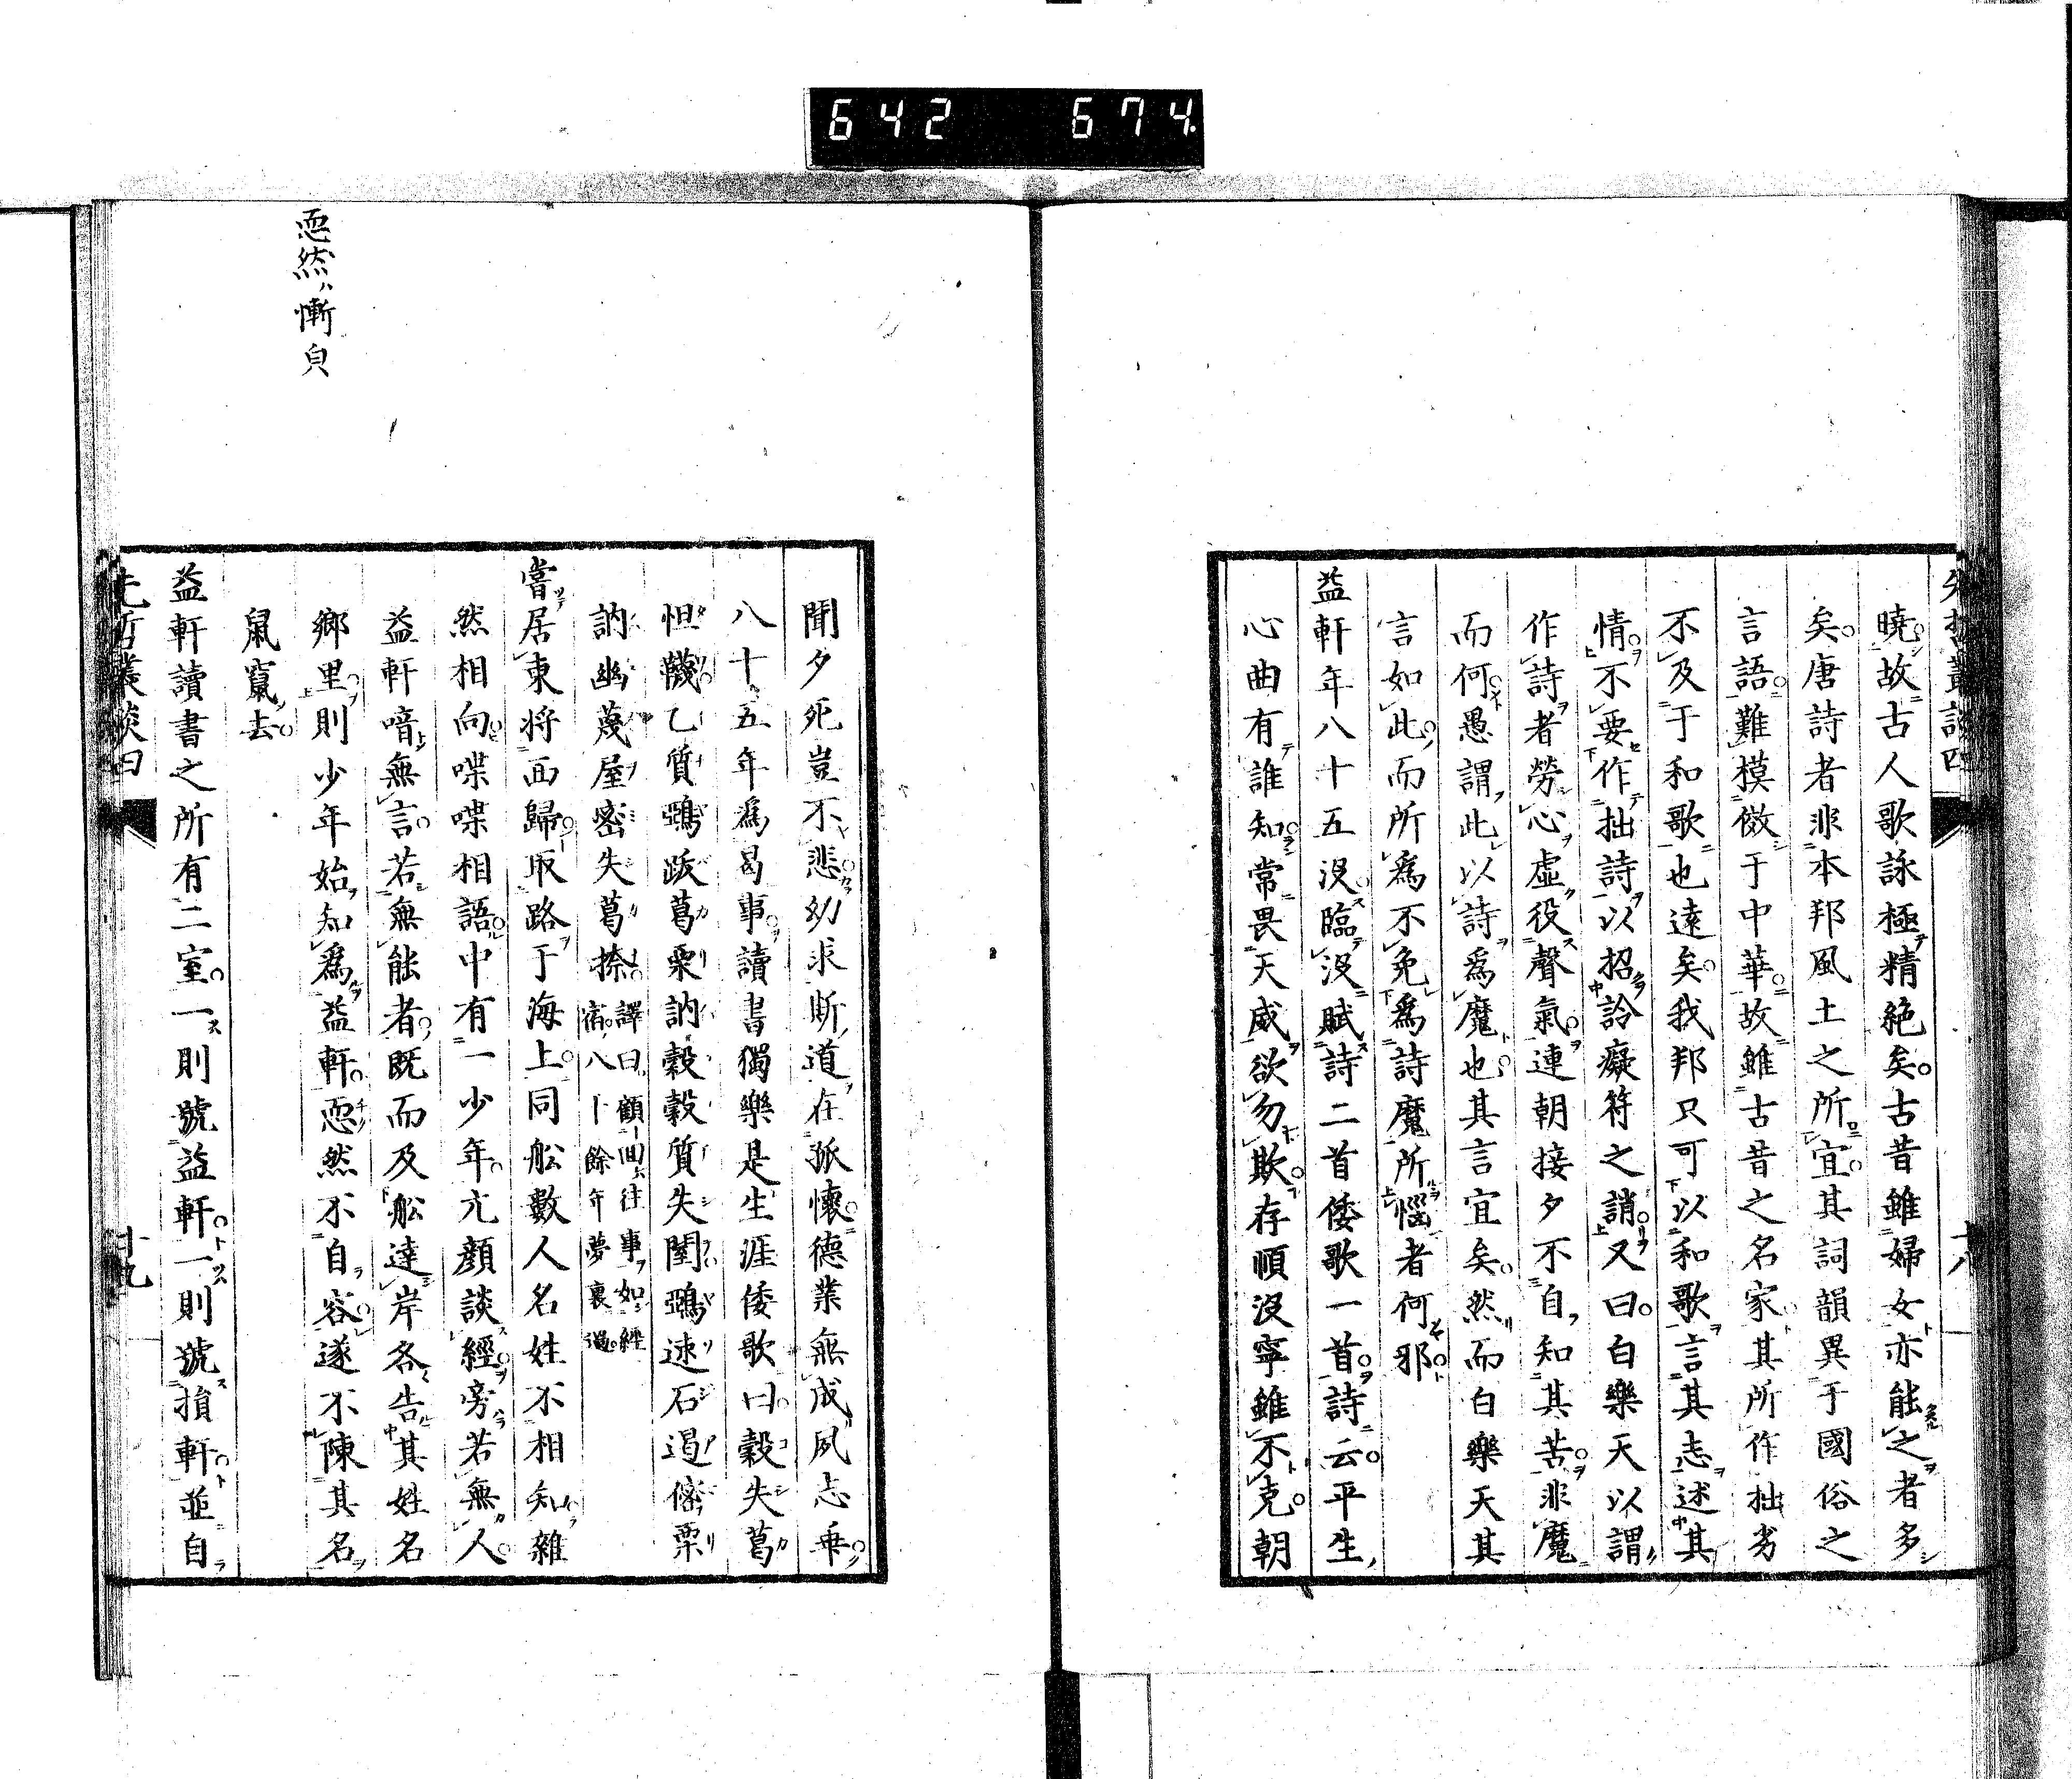 642 674
先哲叢談四
十八
曉故古人歌詠極精絕矣古昔雖婦女亦能之者多
矣唐詩者非本邦風土之所宜其詞韻異于國俗之
言語難模倣于中華故雖古昔之名家其所作拙劣
不及于和歌也遠矣我邦只可以和歌言其志述其
情不要作拙詩以招詅癡符之誚又曰白樂天以謂
作詩者勞心虛役聲氣連朝接夕不自知其苦非魔
而何愚謂此以詩爲魔也其言宜矣然而白樂天其
言如此而所爲不免爲詩魔所惱者何邪
益軒年八十五沒臨沒賦詩二首倭歌一首詩云平生
心曲有誰知常畏天威欲勿欺存順沒寧雖不克朝
聞夕死豈不悲幼求斯道在孤懷德業無成夙志乖
八十五年爲曷事讀書獨樂是生涯倭歌曰穀失葛
怛乙質鵶跋葛栗訥穀穀質失閨鵶速石遏栗
訥幽蔑屋密失葛捺譯曰顧囬往事如經
宿八十餘年夢裏過
嘗居東將西歸取路于海上同舩數人名姓不相知雜
然相向喋喋相語中有一少年亢顏談經旁若無人
益軒喑無言若無能者既而及舩達岸各告其姓名
鄉里則少年始知爲益軒恧然不自容遂不陳其名
鼠竄去
益軒讀書之所有二室一則號益軒一則號損軒並自
先哲叢談四
十九
恧然ハ慚皃